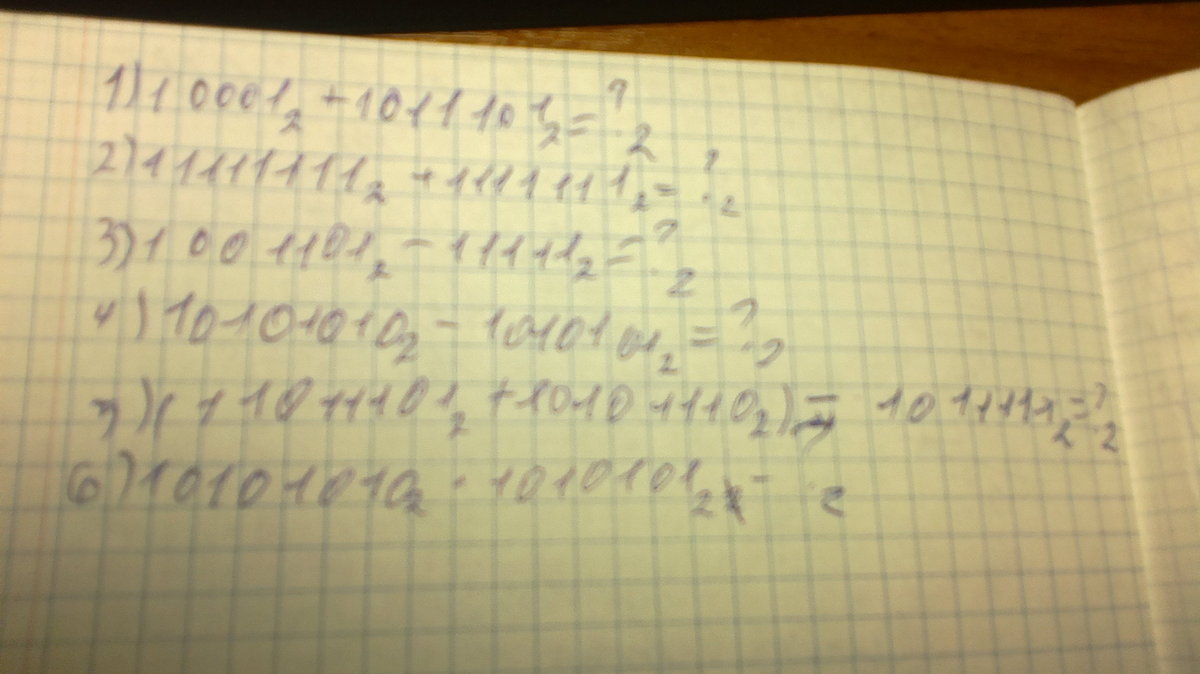 1) 10001₂ + 1011101₂ = ?₂
2) 11111111₂ + 1111111₂ = ?₂
3) 1001101₂ - 11111₂ = ?₂
4) 10101010₂ - 1010101₂ = ?₂
5) (11011101₂ + 10101110₂) - 1011111₂ = ?₂
6) 10101010₂ · 1010101₂ = ₂